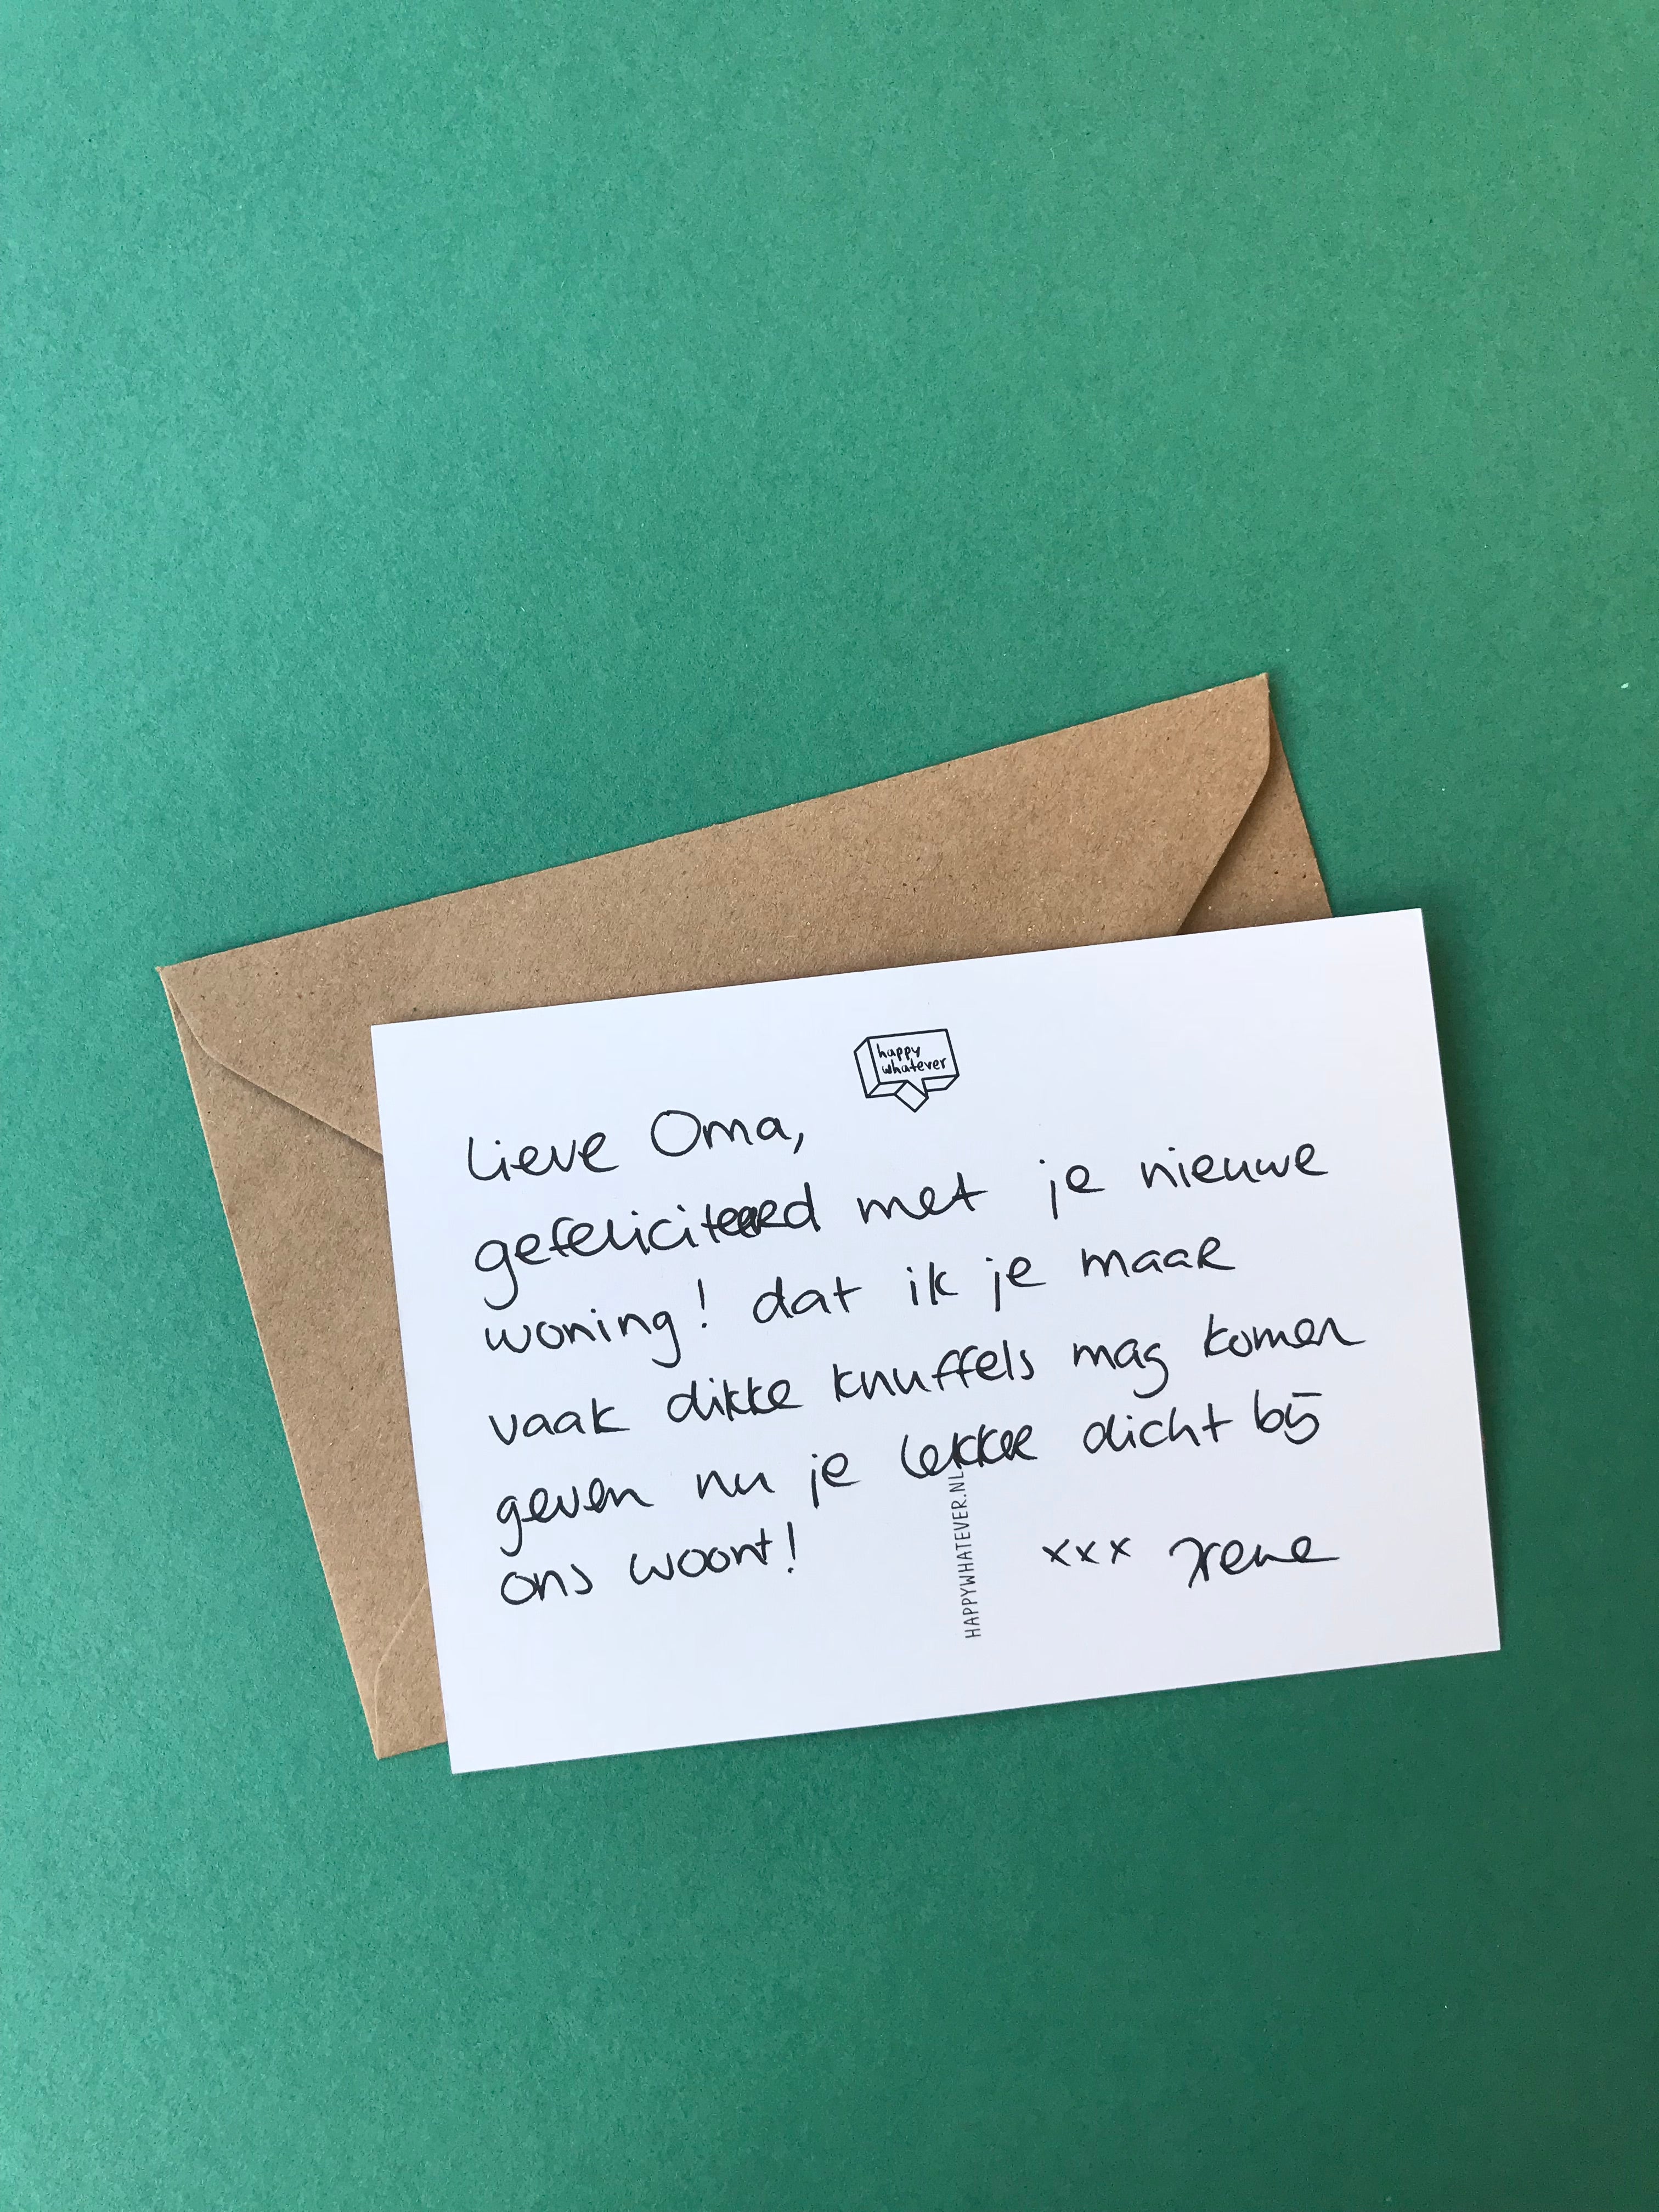 happy
whatever
Lieve Oma,
gefeliciteerd met je nieuwe
woning! dat ik je maar
vaak dikke knuffels mag komen
geven nu je lekker dicht bij
ons woont!
xxx Irene
HAPPYWHATEVER.NL